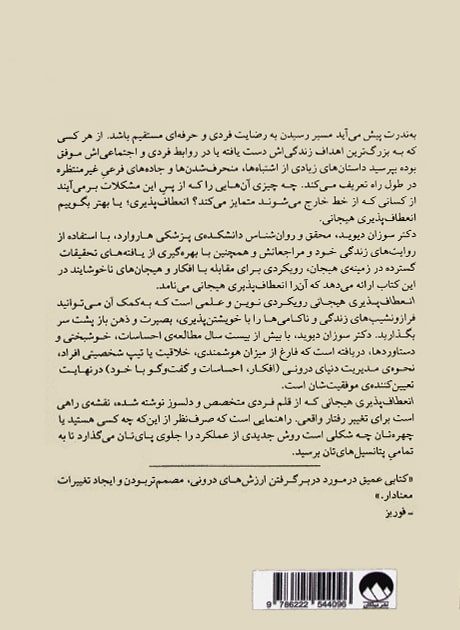 به‌ندرت پیش می‌آید مسیر رسیدن به رضایت فردی و حرفه‌ای مستقیم باشد. از هر کسی
که به بزرگ‌ترین اهداف زندگی‌اش دست یافته یا در روابط فردی و اجتماعی‌اش موفق
بوده بپرسید داستان‌های زیادی از اشتباه‌ها، منحرف‌شدن‌ها و جاده‌های فرعیِ غیرمنتظره
در طول راه تعریف می‌کند. چه چیزی آن‌هایی را که از پسِ این مشکلات برمی‌آیند
از کسانی که از خط خارج می‌شوند متمایز می‌کند؟ انعطاف‌پذیری؛ یا بهتر بگوییم
انعطاف‌پذیری هیجانی.
دکتر سوزان دیوید، محقق و روان‌شناس دانشکده‌ی پزشکی هاروارد، با استفاده از
روایت‌های زندگی خود و مراجعانش و همچنین با بهره‌گیری از یافته‌های تحقیقات
گسترده در زمینه‌ی هیجان، رویکردی برای مقابله با افکار و هیجان‌های ناخوشایند در
این کتاب ارائه می‌دهد که آن‌را انعطاف‌پذیری هیجانی می‌نامد.
انعطاف‌پذیری هیجانی رویکردی نوین و علمی است که به‌کمک آن می‌توانید
فرازونشیب‌های زندگی و ناکامی‌ها را با خویشتن‌پذیری، بصیرت و ذهن باز پشت سر
بگذارید. دکتر سوزان دیوید، با بیش از بیست سال مطالعه‌ی احساسات، خوشبختی و
دستاوردها، دریافته است که فارغ از میزان هوشمندی، خلاقیت یا تیپ شخصیتی افراد،
نحوه‌ی مدیریت دنیای درونی (افکار، احساسات و گفت‌وگو با خود) درنهایت
تعیین‌کننده‌ی موفقیت‌شان است.
انعطاف‌پذیری هیجانی که از قلم فردی متخصص و دلسوز نوشته شده، نقشه‌ی راهی
است برای تغییر رفتار واقعی. راهنمایی است که صرف‌نظر از این‌که چه کسی هستید یا
چهره‌تان چه شکلی است روش جدیدی از عملکرد را جلوی پای‌تان می‌گذارد تا به
تمامیِ پتانسیل‌های‌تان برسید.
«کتابی عمیق درمورد دربرگرفتن ارزش‌های درونی، مصمم‌تربودن و ایجاد تغییرات
معنادار.»
ـ فوربز
9 786222 544096